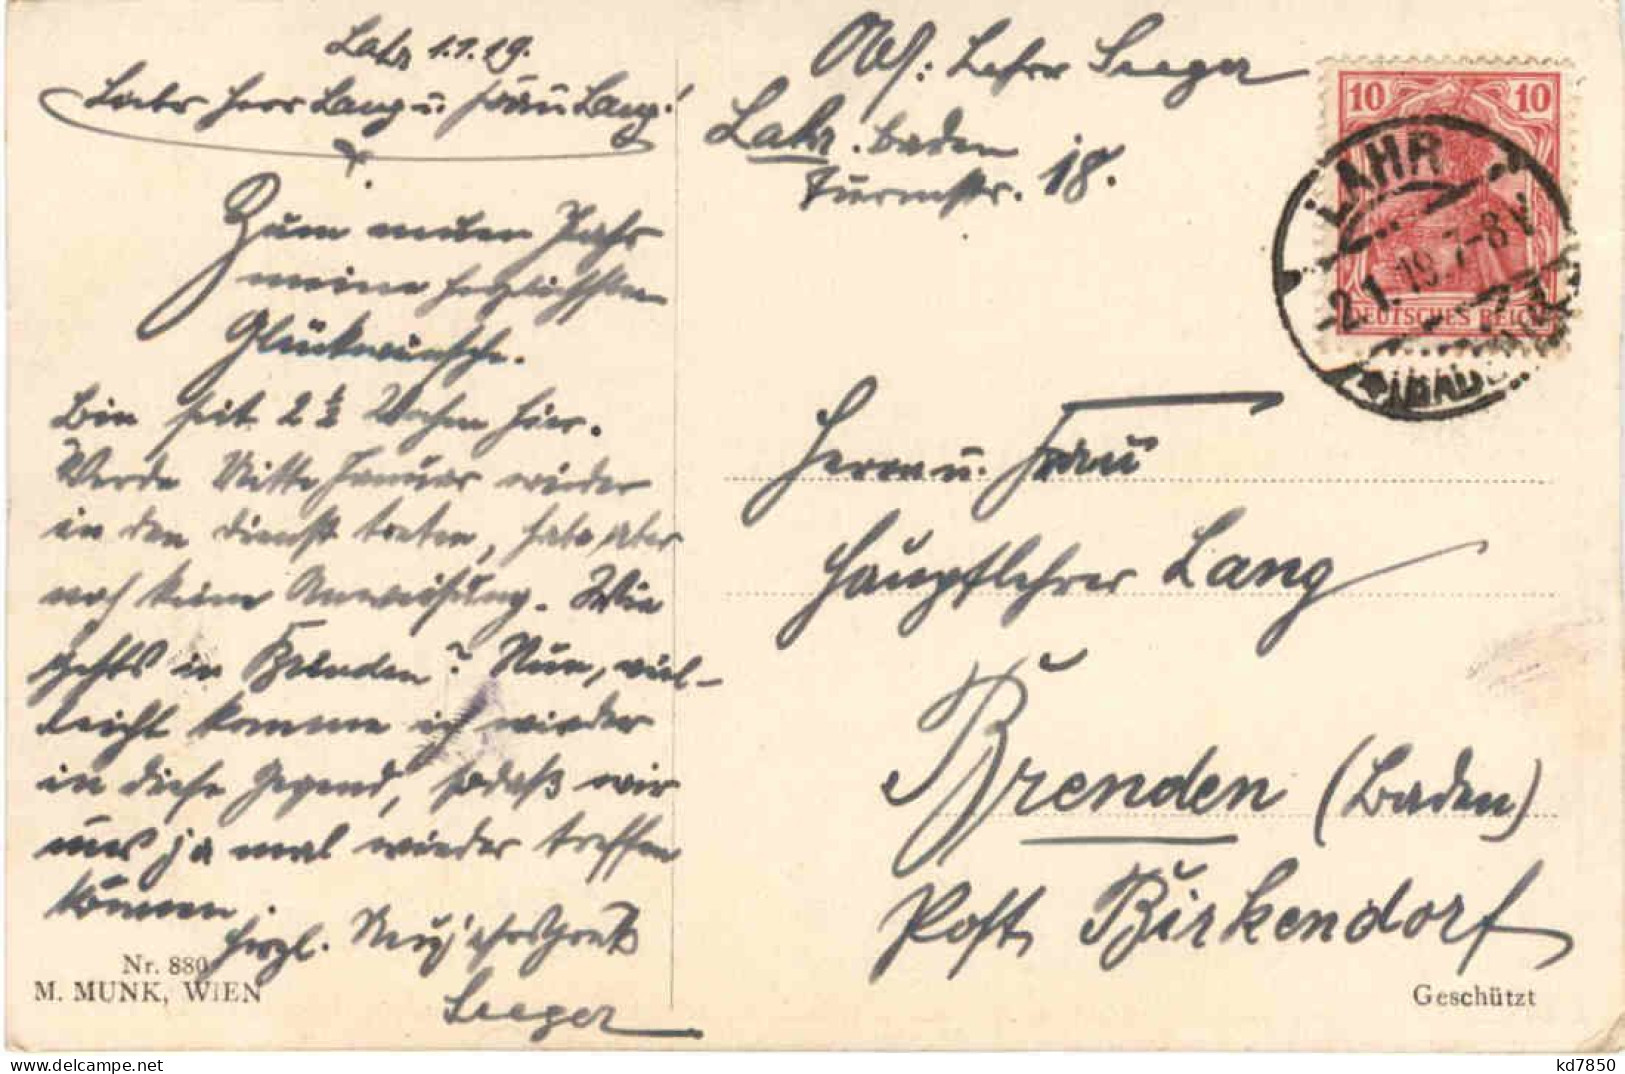 Lahr 1.1.19.
Liebr Herr Lang u. Frau Lang!
Zum neuen Jahr
meine herzlichsten
Glückwünsche.
Bin seit 2 ½ Wochen hier.
Werde Mitte Januar wieder
in den Dienst treten, habe aber
noch keine Anweisung. Wie
gehts in Brenden? Nun, viel-
leicht komme ich wieder
in diese Gegend, sodaß wir
uns ja mal wieder treffen
können.
Herzl. Neujahrsgruß
Seeger
Nr. 880
M. MUNK, WIEN
Abs: Lehrer Seeger
Lahr. Baden
Turmstr. 18.
10 10
DEUTSCHES REICH
LAHR
-2.1.19. 7-8V
(BADEN)
Herrn u. Frau
Hauptlehrer Lang
Brenden (Baden)
Post Birkendorf
Geschützt
kd7850